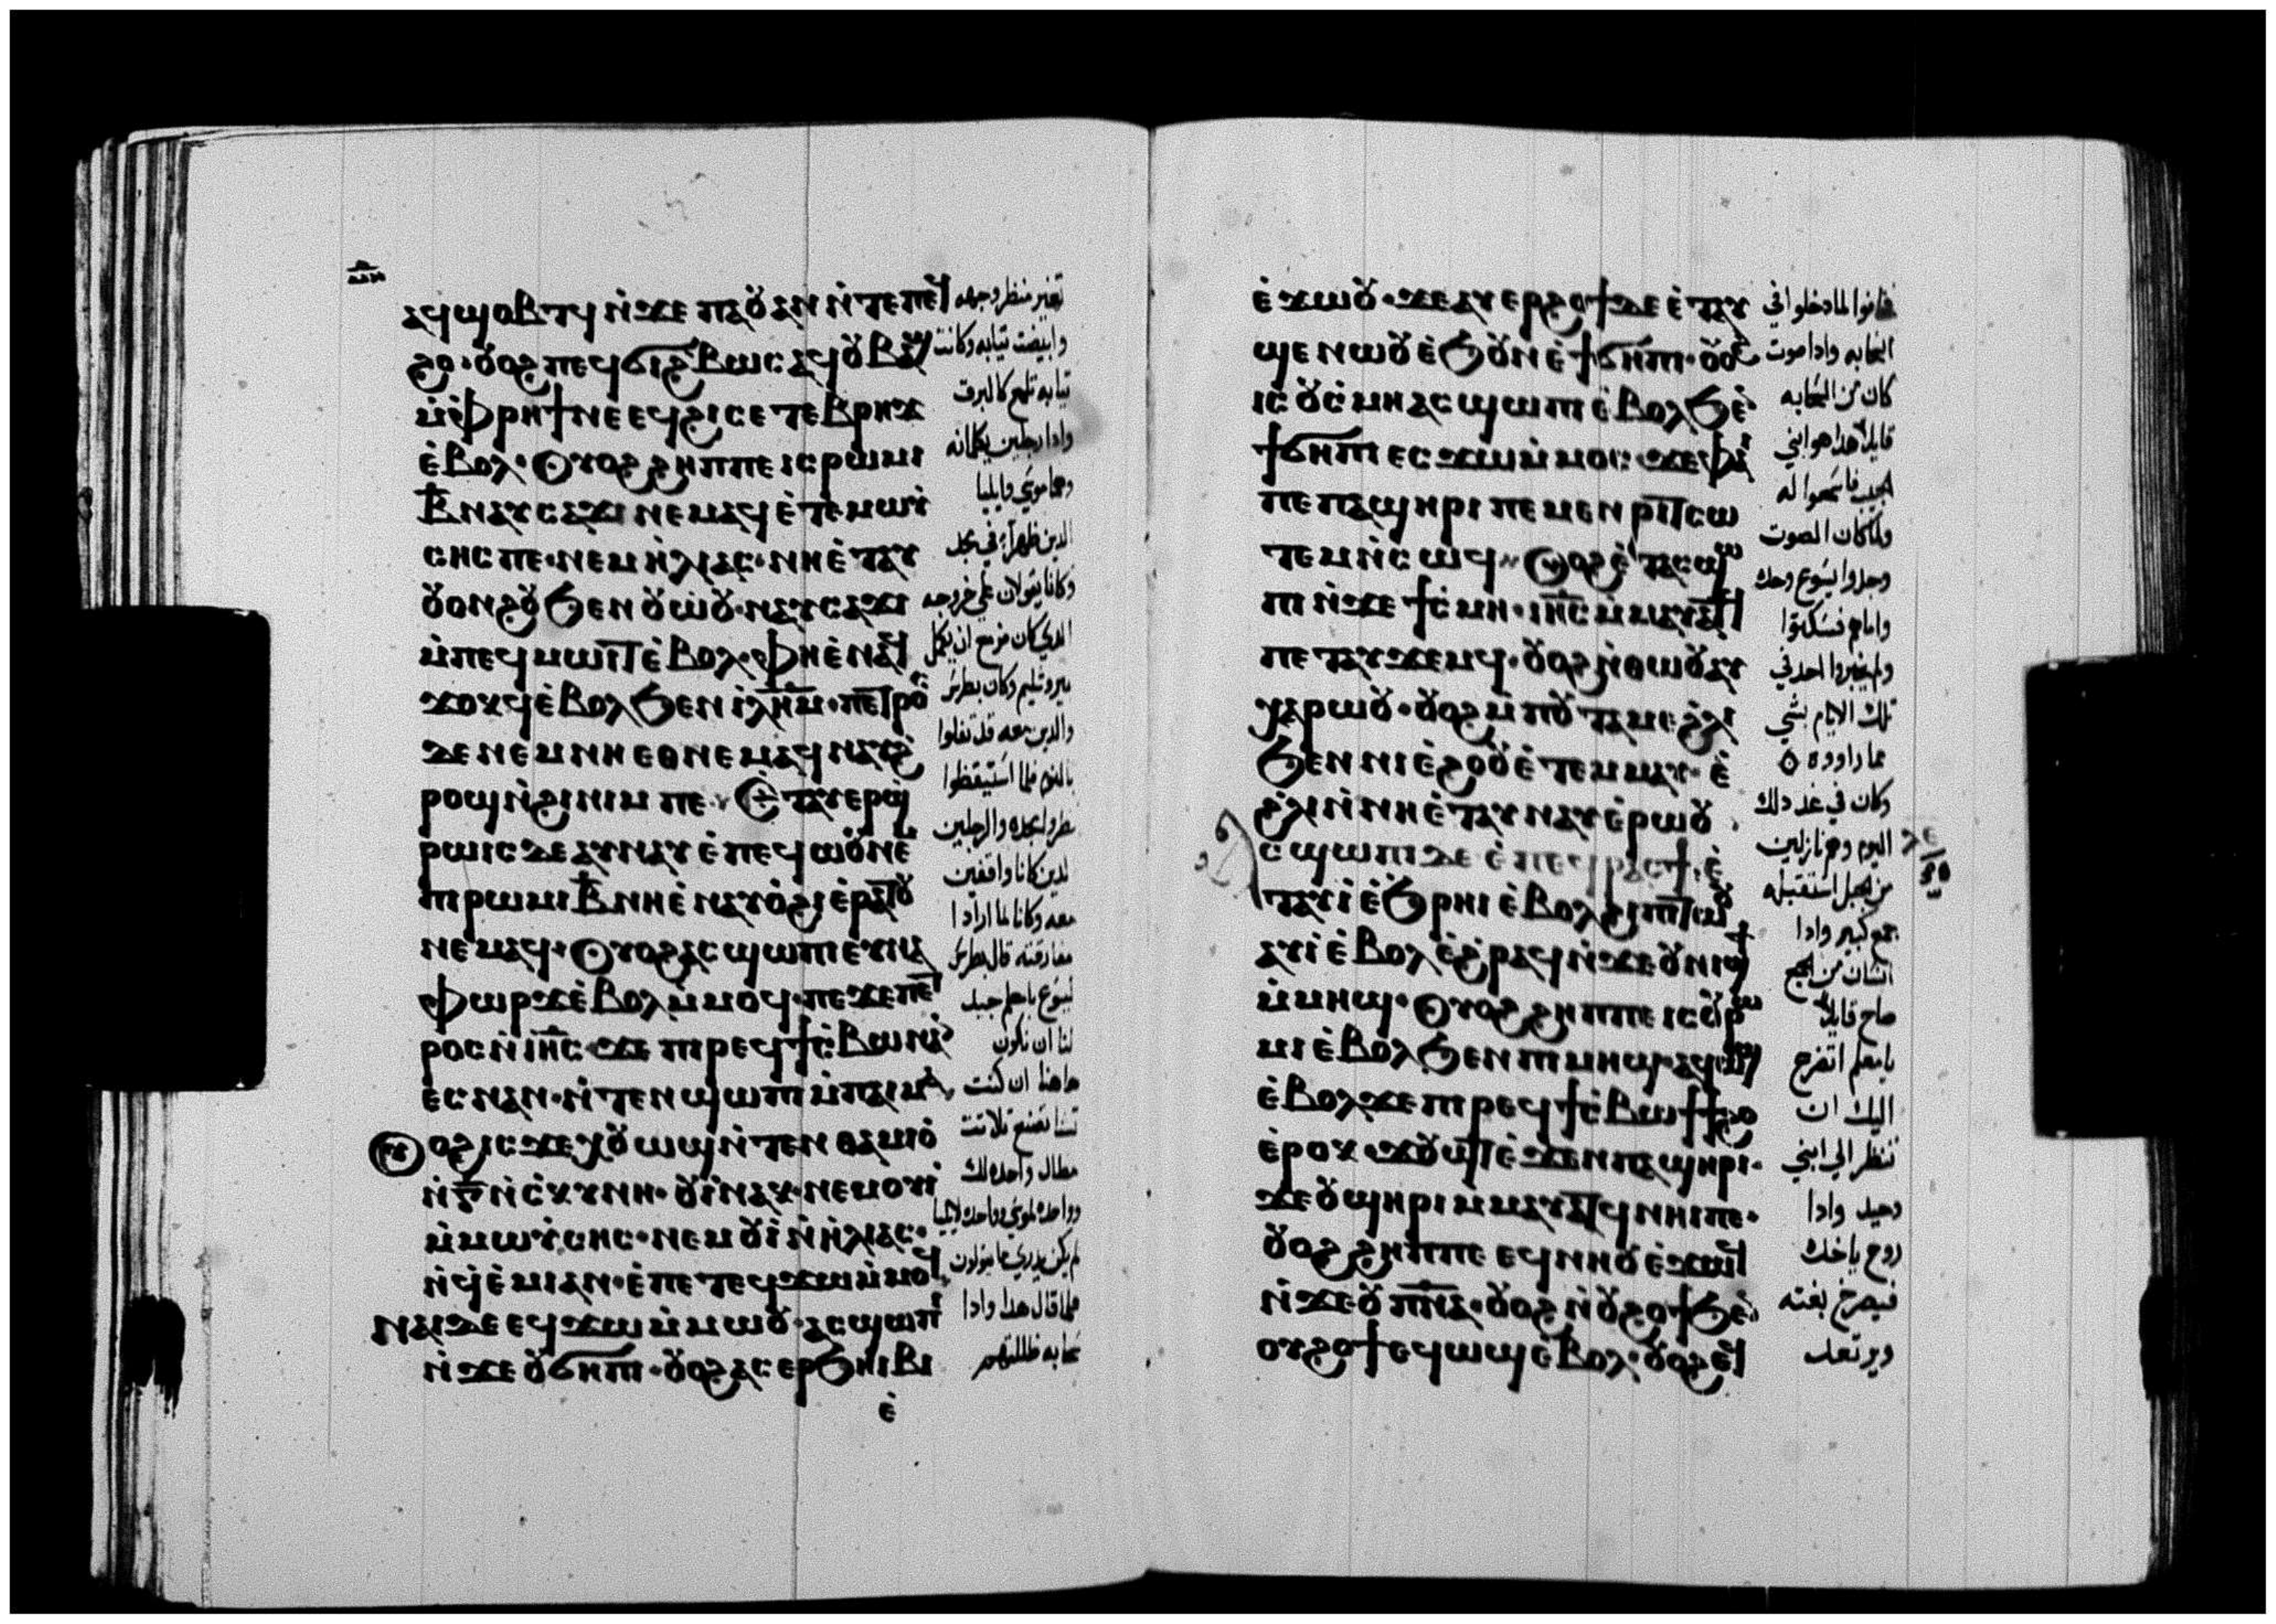 ⲁϥϣⲟⲃⲧϥ ⲛ̀ϫⲉ ⲡⲁⲟⲩⲁⲛ ⲛ̀ⲧⲉ ⲡⲉϥ
ϩⲟ · ⲟⲩⲟϩ ⲡⲉϥϭⲓϩⲃⲱⲥ ⲁϥⲟⲩⲃⲁϣ
ⲙ̀ⲫⲣⲏϯ ⲛⲉ ⲉϥϩⲓⲥⲉⲧⲉⲃⲣⲏϫ
ⲉ̀ⲃⲟⲗ · ⲟⲩⲟϩ ϩⲏⲡⲡⲉ ⲓⲥ ⲣⲱⲙⲓ
ⲃ̅ ⲛⲁⲩⲥⲁϫⲓ ⲛⲉⲙⲁϥ ⲉ̀ⲧⲉ ⲙⲱⲓ̀
ⲥⲏⲥ ⲡⲉ · ⲛⲉⲙ ⲏ̀ⲗⲓⲁⲥ · ⲛⲏⲉ̀ⲧⲁⲩ
ⲟⲩⲟⲛϩⲟⲩ ϧⲉⲛ ⲟⲩⲱ̀ⲟⲩ · ⲛⲁⲩⲥⲁϫⲓ
ⲙ̀ⲡⲉϥⲙⲱⲓⲧ ⲉ̀ⲃⲟⲗ · ⲫⲏⲉ̀ⲛⲁϥ
ϫⲟⲕϥ ⲉ̀ⲃⲟⲗ ϧⲉⲛ ⲓ̀ⲗ̅ⲏ̅ⲙ̅ · ⲡⲉⲧⲣⲟⲥ
ⲇⲉ ⲛⲉⲙ ⲛⲏ ⲉⲑⲛⲉⲙⲁϥ ⲛⲁⲩϩ
ⲣⲟϣ ⲛ̀ϩⲓⲛⲓⲙ ⲡⲉ · ⲉ̀ⲧⲁⲩⲉⲣϣ
ⲣⲱⲓⲥ ⲇⲉ ⲁⲩⲛⲁⲩ ⲉ̀ⲡⲉϥⲱⲟⲩ ⲛⲉⲙ
ⲡⲓⲣⲱⲙⲓ ⲃ̅ ⲛⲏⲉ̀ⲛⲁⲩⲟ̀ϩⲓ ⲉ̀ⲣⲁⲧⲟⲩ
ⲛⲉⲙⲁϥ · ⲟⲩⲟϩ ⲁⲥϣⲱⲡⲓ ⲉⲩⲛⲁ
ⲫⲱⲣϫ ⲉ̀ⲃⲟⲗ ⲙ̀ⲙⲟϥ · ⲡⲉϫⲉ ⲡⲉⲧ
ⲣⲟⲥ ⲛ̀ⲓ̅ⲏ̅ⲥ̅ · ϫⲉ ⲡⲓⲣⲉϥϯⲥ̀ⲃⲱ ⲛⲁⲛ
ⲉⲥ ⲛⲁⲛ · ⲛ̀ⲧⲉⲛϣⲱⲡⲓ ⲙ̀ⲡⲁⲓⲙⲁ
ⲟϩ ⲓⲥϫⲉ ⲭⲟⲩⲱϣ ⲛ̀ⲧⲉⲛⲑⲁⲙⲓⲟ̀
ⲛ̀ⲅ̅ ⲛ̀ⲥ̀ⲕⲩⲛⲏ · ⲟⲩⲓ̀ ⲛⲁⲕ · ⲛⲉⲙ ⲟⲩⲓ̀
ⲙ̀ⲙⲱⲩ̀ⲥⲏⲥ · ⲛⲉⲙ ⲟⲩⲓ̀ ⲛ̀ⲏ̀ⲗⲓⲁⲥ ·
ⲛ̀ϥⲉ̀ⲙⲓ ⲁⲛ · ⲉ̀ⲡⲉⲧⲉϥϫⲱ ⲙ̀ⲙⲟϥ
ⲛⲁⲓ ⲇⲉ ⲉϥϫⲱ ⲙ̀ⲙⲱⲟⲩ · ⲁⲥϣⲱⲡⲓ
ⲛ̀ϫⲉ ⲟⲩϭⲏⲡⲓ · ⲟⲩⲟϩ ⲁⲥⲉⲣϧⲏⲓⲃⲓ
ⲉ̀
تغير منظر وجهه
وابيضت تيابه وكانت
تيابه تلمع كالبرق
وادا رجلين يكلمانه
وهما موسي وايليا
الدين ظهرا في مجد
وكانا يقولان علي خروجه
الدي كان مزمع ان يكمل
بيروشليم وكان بطرس
والدين معه قد تقلوا
بالنوم فلما استيقظوا
نظروا مجده والرجلين
الدين كانا واقفين
معه وكانا لما ارادا
مفارقته قال بطرس
ليسوع يا معلم جيد
لنا ان نكون
هاهنا ان كنت
تشا نصنع تلاتت
مظال واحده لك
وواحده لموسي وواحده لايليا
لم يكن يدري ما يقولون
فلما قال هدا وادا
سحابه ظللتهم
ⲉ̀ϫⲱⲟⲩ · ϫⲉ ⲁⲩⲉⲣϩⲟϯ ⲇⲉ ⲉ̀ⲧⲁⲩ
ϣⲉⲛⲱⲟⲩ ⲉ̀ϧⲟⲩⲛ ⲉ̀ϯϭⲏⲡⲓ · ⲟⲩⲟϩ
ⲓⲥ ⲟⲩⲥ̀ⲙⲏ ⲁⲥϣⲱⲡⲓ ⲉ̀ⲃⲟⲗ ϧⲉⲛ
ϯϭⲏⲡⲓ ⲉⲥϫⲱ ⲙ̀ⲙⲟⲥ · ϫⲉ ⲫⲁⲓ
ⲡⲉ ⲡⲁϣⲏⲣⲓ ⲡⲉⲙⲉⲛⲣⲓⲧ ⲥⲱ
ⲧⲉⲙ ⲛ̀ⲥⲱϥ · ⲟⲩⲟϩ ⲉ̀ⲧⲁⲥϣⲱ
ⲡⲓ ⲛ̀ϫⲉ ϯⲥ̀ⲙⲏ · ⲓ̅ⲏ̅ⲥ̅ ⲙ̀ⲙⲁⲩⲁⲧϥ
ⲡⲉⲧⲁⲩϫⲉⲙϥ · ⲟⲩⲟϩ ⲛ̀ⲑⲱⲟⲩ ⲁⲩ
ⲭⲁⲣⲱⲟⲩ · ⲟⲩⲟϩ ⲙ̀ⲡⲟⲩⲧⲁⲙⲉ ϩⲗⲓ
ϧⲉⲛ ⲛⲓⲉ̀ϩⲟⲟⲩ ⲉ̀ⲧⲉⲙⲙⲁⲩ · ⲉ̀
ϩ̀ⲗⲓ ⲛ̀ⲛⲏⲉ̀ⲧⲁⲩⲛⲁⲩ ⲉ̀ⲣⲱⲟⲩ
ⲥϣⲱⲡⲓ ⲇⲉ ⲉ̀ⲡⲉϥⲣⲁⲥϯ · ⲉ̀
ⲧⲁⲩⲓ̀ ⲉ̀ϧⲣⲏⲓ ⲉ̀ⲃⲟⲗ ϩⲓ ⲡⲓⲧⲱⲟⲩ
ⲁⲩⲓ̀ ⲉ̀ⲃⲟⲗ ⲉ̀ϩ̀ⲣⲁϥ ⲛ̀ϫⲉ ⲟⲩⲛⲓϣϯ
ⲙ̀ⲙⲏϣ · ⲟⲩⲟϩ ϩⲏⲡⲡⲉ ⲓⲥ ⲟⲩⲣⲱ
ⲙⲓ ⲉ̀ⲃⲟⲗ ϧⲉⲛ ⲡⲓⲙⲏϣ · ⲁϥⲱϣ
ⲉ̀ⲃⲟⲗ ϫⲉ ⲡⲓⲣⲉϥϯⲥ̀ⲃⲱ ϯϯϩⲟ
ⲉ̀ⲣⲟⲕ ϫⲟⲩϣⲧ ⲉ̀ϫⲉⲛ ⲡⲁϣⲏⲣⲓ ·
ϫⲉ ⲟⲩϣⲏⲣⲓ ⲙⲙⲁⲩⲁⲧϥ ⲛⲏⲓ ⲡⲉ ·
ⲟⲩⲟϩ ϩⲏⲡⲡⲉ ⲉϥⲛⲏⲟⲩ ⲉ̀ϫⲱϥ
ⲛ̀ϫⲉ ⲟⲩⲡ̅ⲛ̅ⲁ̅ · ⲟⲩⲟϩ ⲛ̀ⲟⲩϩⲟϯ ϧⲉⲛ
ⲟⲩϩⲟϯ ⲉϥⲱϣ ⲉ̀ⲃⲟⲗ · ⲟⲩⲟϩ ⲉϥ
فخافوا لما دخلوا في
السحابه وادا صوت
كان من السحابه
قايلا هدا هو ابني
الحبيب فاسمعوا له
ولما كان الصوت
وجدوا يسوع وحده
واما هم فسكتوا
ولم يخبروا احد في
تلك الايام بشي
مما راووه
وكان في غد دلك
اليوم وهم نازلين
من الجبل استقبله
جمع كبير وادا
انسان من الجمع
صاح قايلا
يا معلم اتضرع
اليك ان
تنظر الي ابني
وحيد وادا
روح ياخده
فيصرخ بغته
ويرتعد